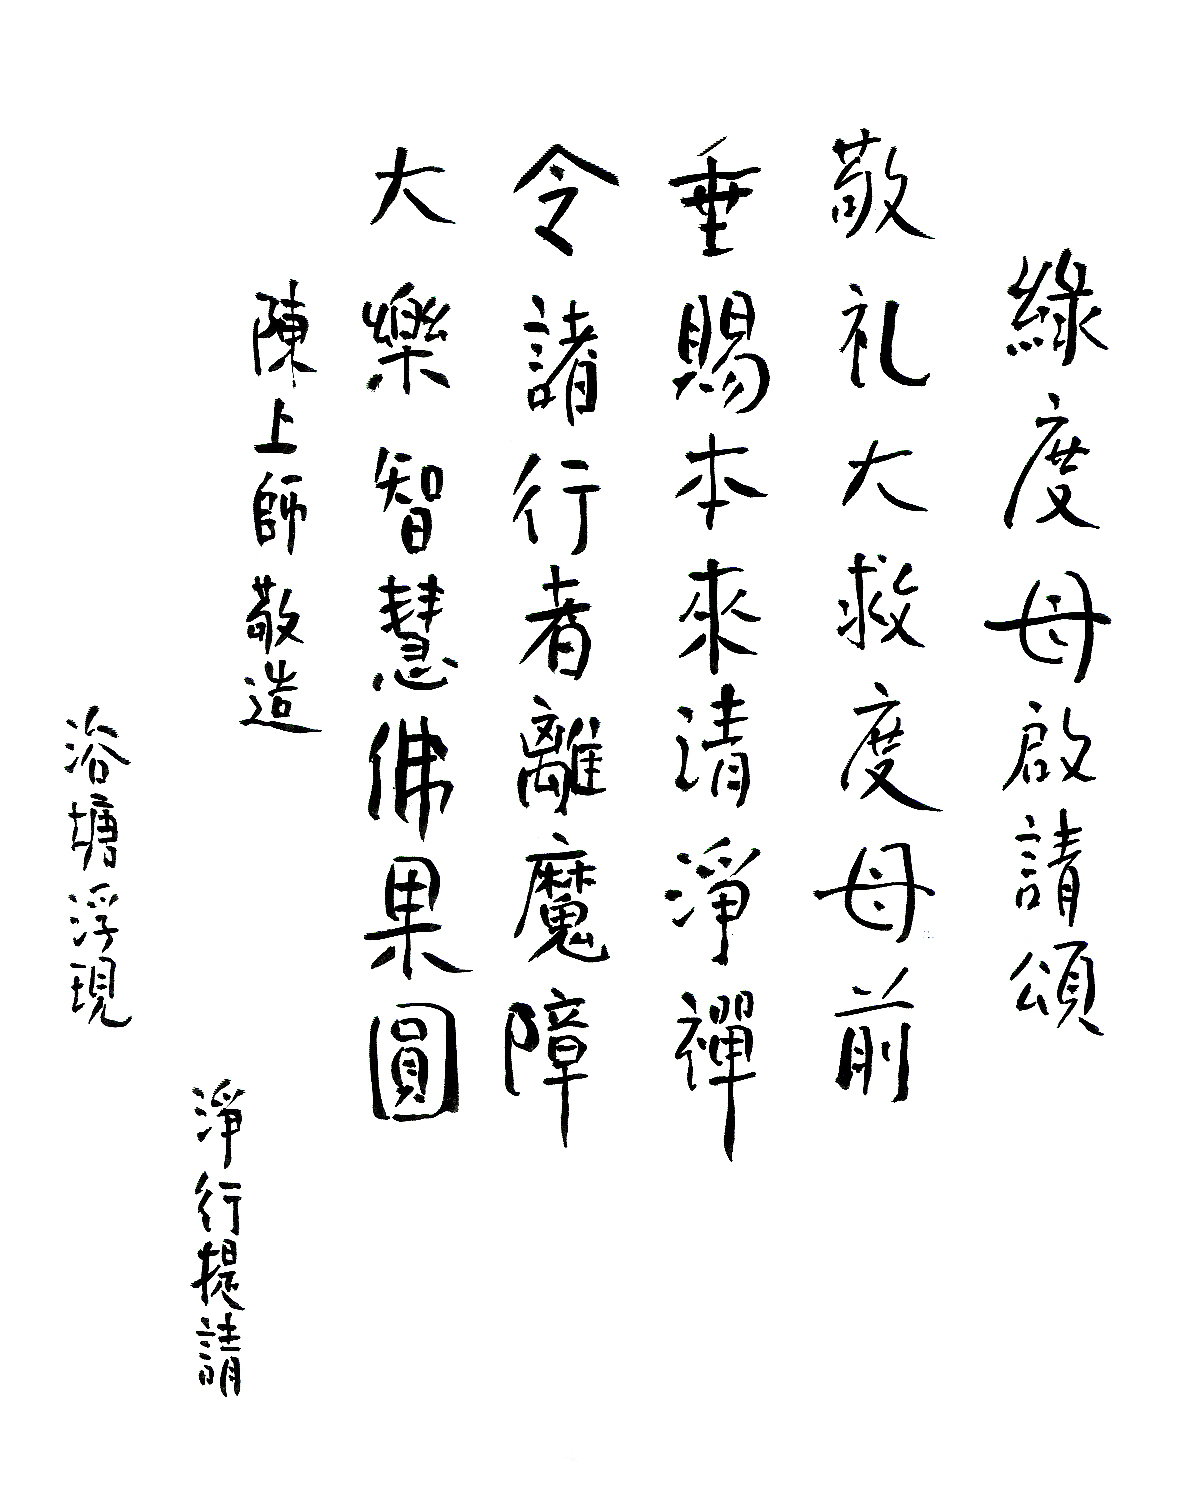 綠度母啟請頌
敬礼大救度母前
垂賜本來清淨禪
令諸行者離魔障
大樂智慧佛果圓
陳上師敬造
淨行提請
浴塘浮現